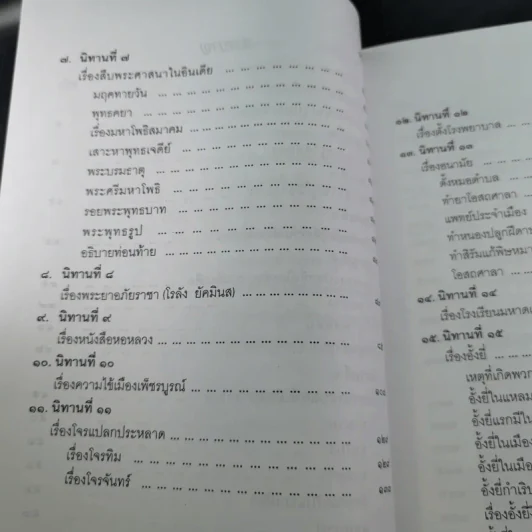 ๗. นิทานที่ ๗
เรื่องสืบพระศาสนาในอินเดีย ... ... ... ... ... ... ... ...
มฤคทายวัน ... ... ... ... ... ... ... ... ... ...
พุทธคยา ... ... ... ... ... ... ... ... ... ...
เรื่องมหาโพธิสมาคม ... ... ... ... ... ... ... ...
เสาะหาพุทธเจดีย์ ... ... ... ... ... ... ... ...
พระบรมธาตุ ... ... ... ... ... ... ... ... ...
พระศรีมหาโพธิ ... ... ... ... ... ... ... ...
รอยพระพุทธบาท ... ... ... ... ... ... ... ...
พระพุทธรูป ... ... ... ... ... ... ... ... ...
อธิบายท่อนท้าย ... ... ... ... ... ... ... ...
๘. นิทานที่ ๘
เรื่องพระยาอภัยราชา (โรลัง ยัคมินส) ... ... ... ... ... ...
๙. นิทานที่ ๙
เรื่องหนังสือหอหลวง ... ... ... ... ... ... ... ... ...
๑๐. นิทานที่ ๑๐
เรื่องความไข้เมืองเพ็ชรบูรณ์ ... ... ... ... ... ... ... ...
๑๑. นิทานที่ ๑๑
เรื่องโจรแปลกประหลาด ... ... ... ... ... ... ... ... ...
เรื่องโจรทิม ... ... ... ... ... ... ... ... ... ...
เรื่องโจรจันทร์ ... ... ... ... ... ... ... ... ...
๑๒. นิทานที่ ๑๒
เรื่องตั้งโรงพยาบาล
๑๓. นิทานที่ ๑๓
เรื่องอนามัย ...
ตั้งหมอตำบล ...
ทำยาโอสถศาลา
แพทย์ประจำเมือง
ทำหนองปลูกฝีดาษ
ทำสิรัมแก้พิษหมา
โอสถศาลา ...
๑๔. นิทานที่ ๑๔
เรื่องโรงเรียนมหาดเ
๑๕. นิทานที่ ๑๕
เรื่องอั้งยี่ ...
เหตุที่เกิดพวก
อั้งยี่ในแหลม
อั้งยี่แรกมีใน
อั้งยี่ในเมือง
อั้งยี่ในเมือ
อั้งยี่กำเริบ
เรื่องอั้งยี่